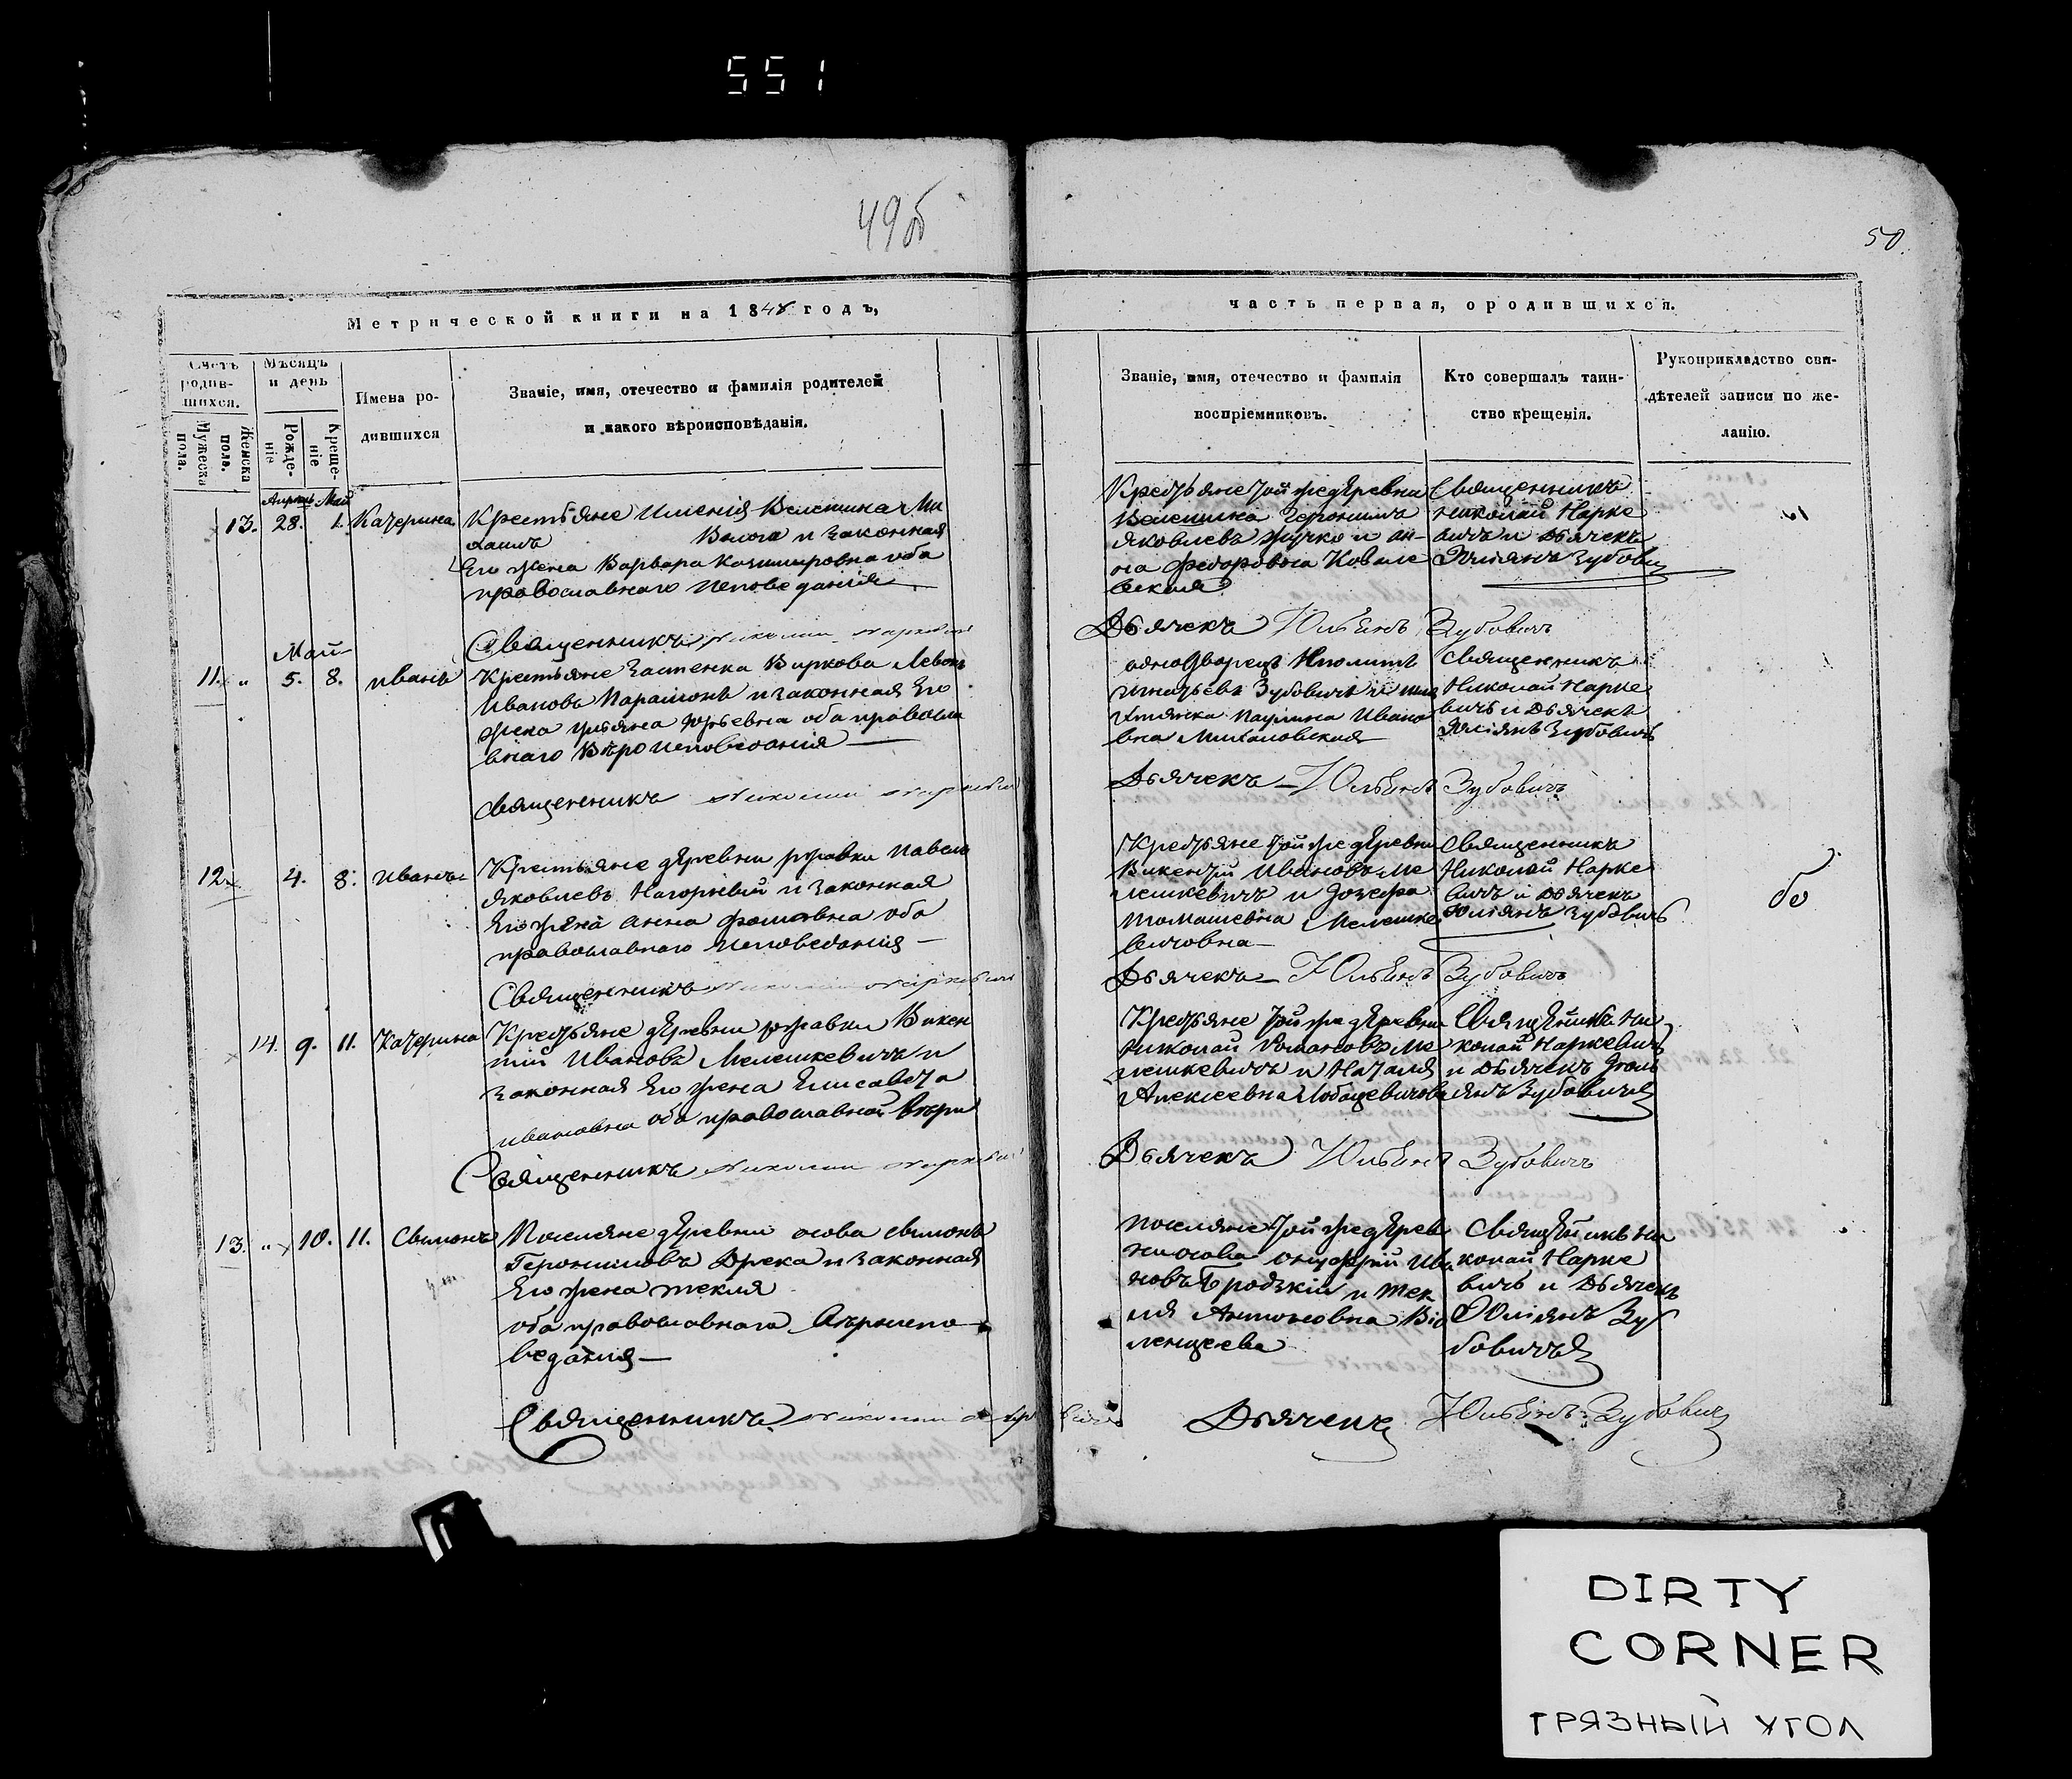 551
49об
50.
Метрической книги на 1848 годъ,
часть первая, ородившихся.
Счетъ родив-шихся.
Мужеска пола.
Женска пола.
Мѣсяцъ и день
Рожде-ніе
Креще-ніе
Имена ро-
дившихся
Званіе, имя, отечество и фамилія родителей
и какого вѣроисповѣданія.
Званіе, имя, отечество и фамилія
воспріемниковъ.
Кто совершалъ таин-
ство крещенія.
Рукоприкладство сви-
дѣтелей записи по же-
ланію.
Апрель Май
13. 28. 1. Катерина
Крестьяне имения Велешина Ми
хаилъ Волога и законная
Его жена Варвара Казимировна оба
православнаго исповедания
Крестьяне той же деревни
Велешина Геронимъ
Яковлевъ Жучко и ан-
на Федоровна Ковале
вская
Священникъ
Николай Нарке
вичъ и Дьячекъ
Юлианъ Зубович
Священникъ Николай Наркевич
Дьячекъ Юльянъ Зубовичъ
Май
11. " 5. 8. иванъ
Крестьяне Застенка Виркова Левонъ
Ивановъ Парамонъ и законная Его
жена ульяна Юрьевна оба правосла
внаго Вероисповедания
однодворецъ Иполитъ
Игнатьевъ Зубовичъ и
Паулина Ивано
вна Михаловская
Священникъ
Николай Нарке
вичъ и Дьячекъ
Юлианъ Зубовичъ
Священникъ Николай Наркевич
Дьячекъ Юльянъ Зубовичъ
12. 4. 8. Иванъ
Крестьяне деревни ржавки Павелъ
Яковлевъ Нагорный и законная
Его жена анна фомовна оба
православнаго исповедания
Крестьяне той же деревни
Викентий Ивановъ Ме
лешкевичъ и Иозефа
томашевна Мелешке
вичовна
Священникъ
Николай Нарке
вичъ и Дьячекъ
Юлианъ Зубовичъ
Священникъ Николай Наркевич
Дьячекъ Юльянъ Зубовичъ
14. 9. 11. Катерина
Крестьяне деревни ржавки Викен
тий Ивановъ Мелешкевичъ и
законная Его жена Елисавета
ивановна оба православной веры
Крестьяне той же деревни
Николай Романовъ Ме
лешкевичъ и Наталия
Алексеевна Лобацевичова
Священникъ Ни
колай Наркевичъ
и Дьячекъ Юли
янъ Зубовичъ
Священникъ Николай Наркевич
Дьячекъ Юльянъ Зубовичъ
13. " 10. 11. Семионъ
Поселяне деревни осова симонъ
Геронимовъ Дрека и законная
Его жена текля
оба православнаго Вероиспо
ведания
Поселяне той же дерев
ни осова онуфрий Ива
новъ Бродзкий и тек
ля Антоновна Ви
ленцеева
Священникъ Ни
колай Нарке
вичъ и Дьячекъ
Юлианъ Зу
бовичъ
Священникъ Николай Наркевичъ
Дьячекъ Юльянъ Зубовичъ
DIRTY
CORNER
ГРЯЗНЫЙ УГОЛ